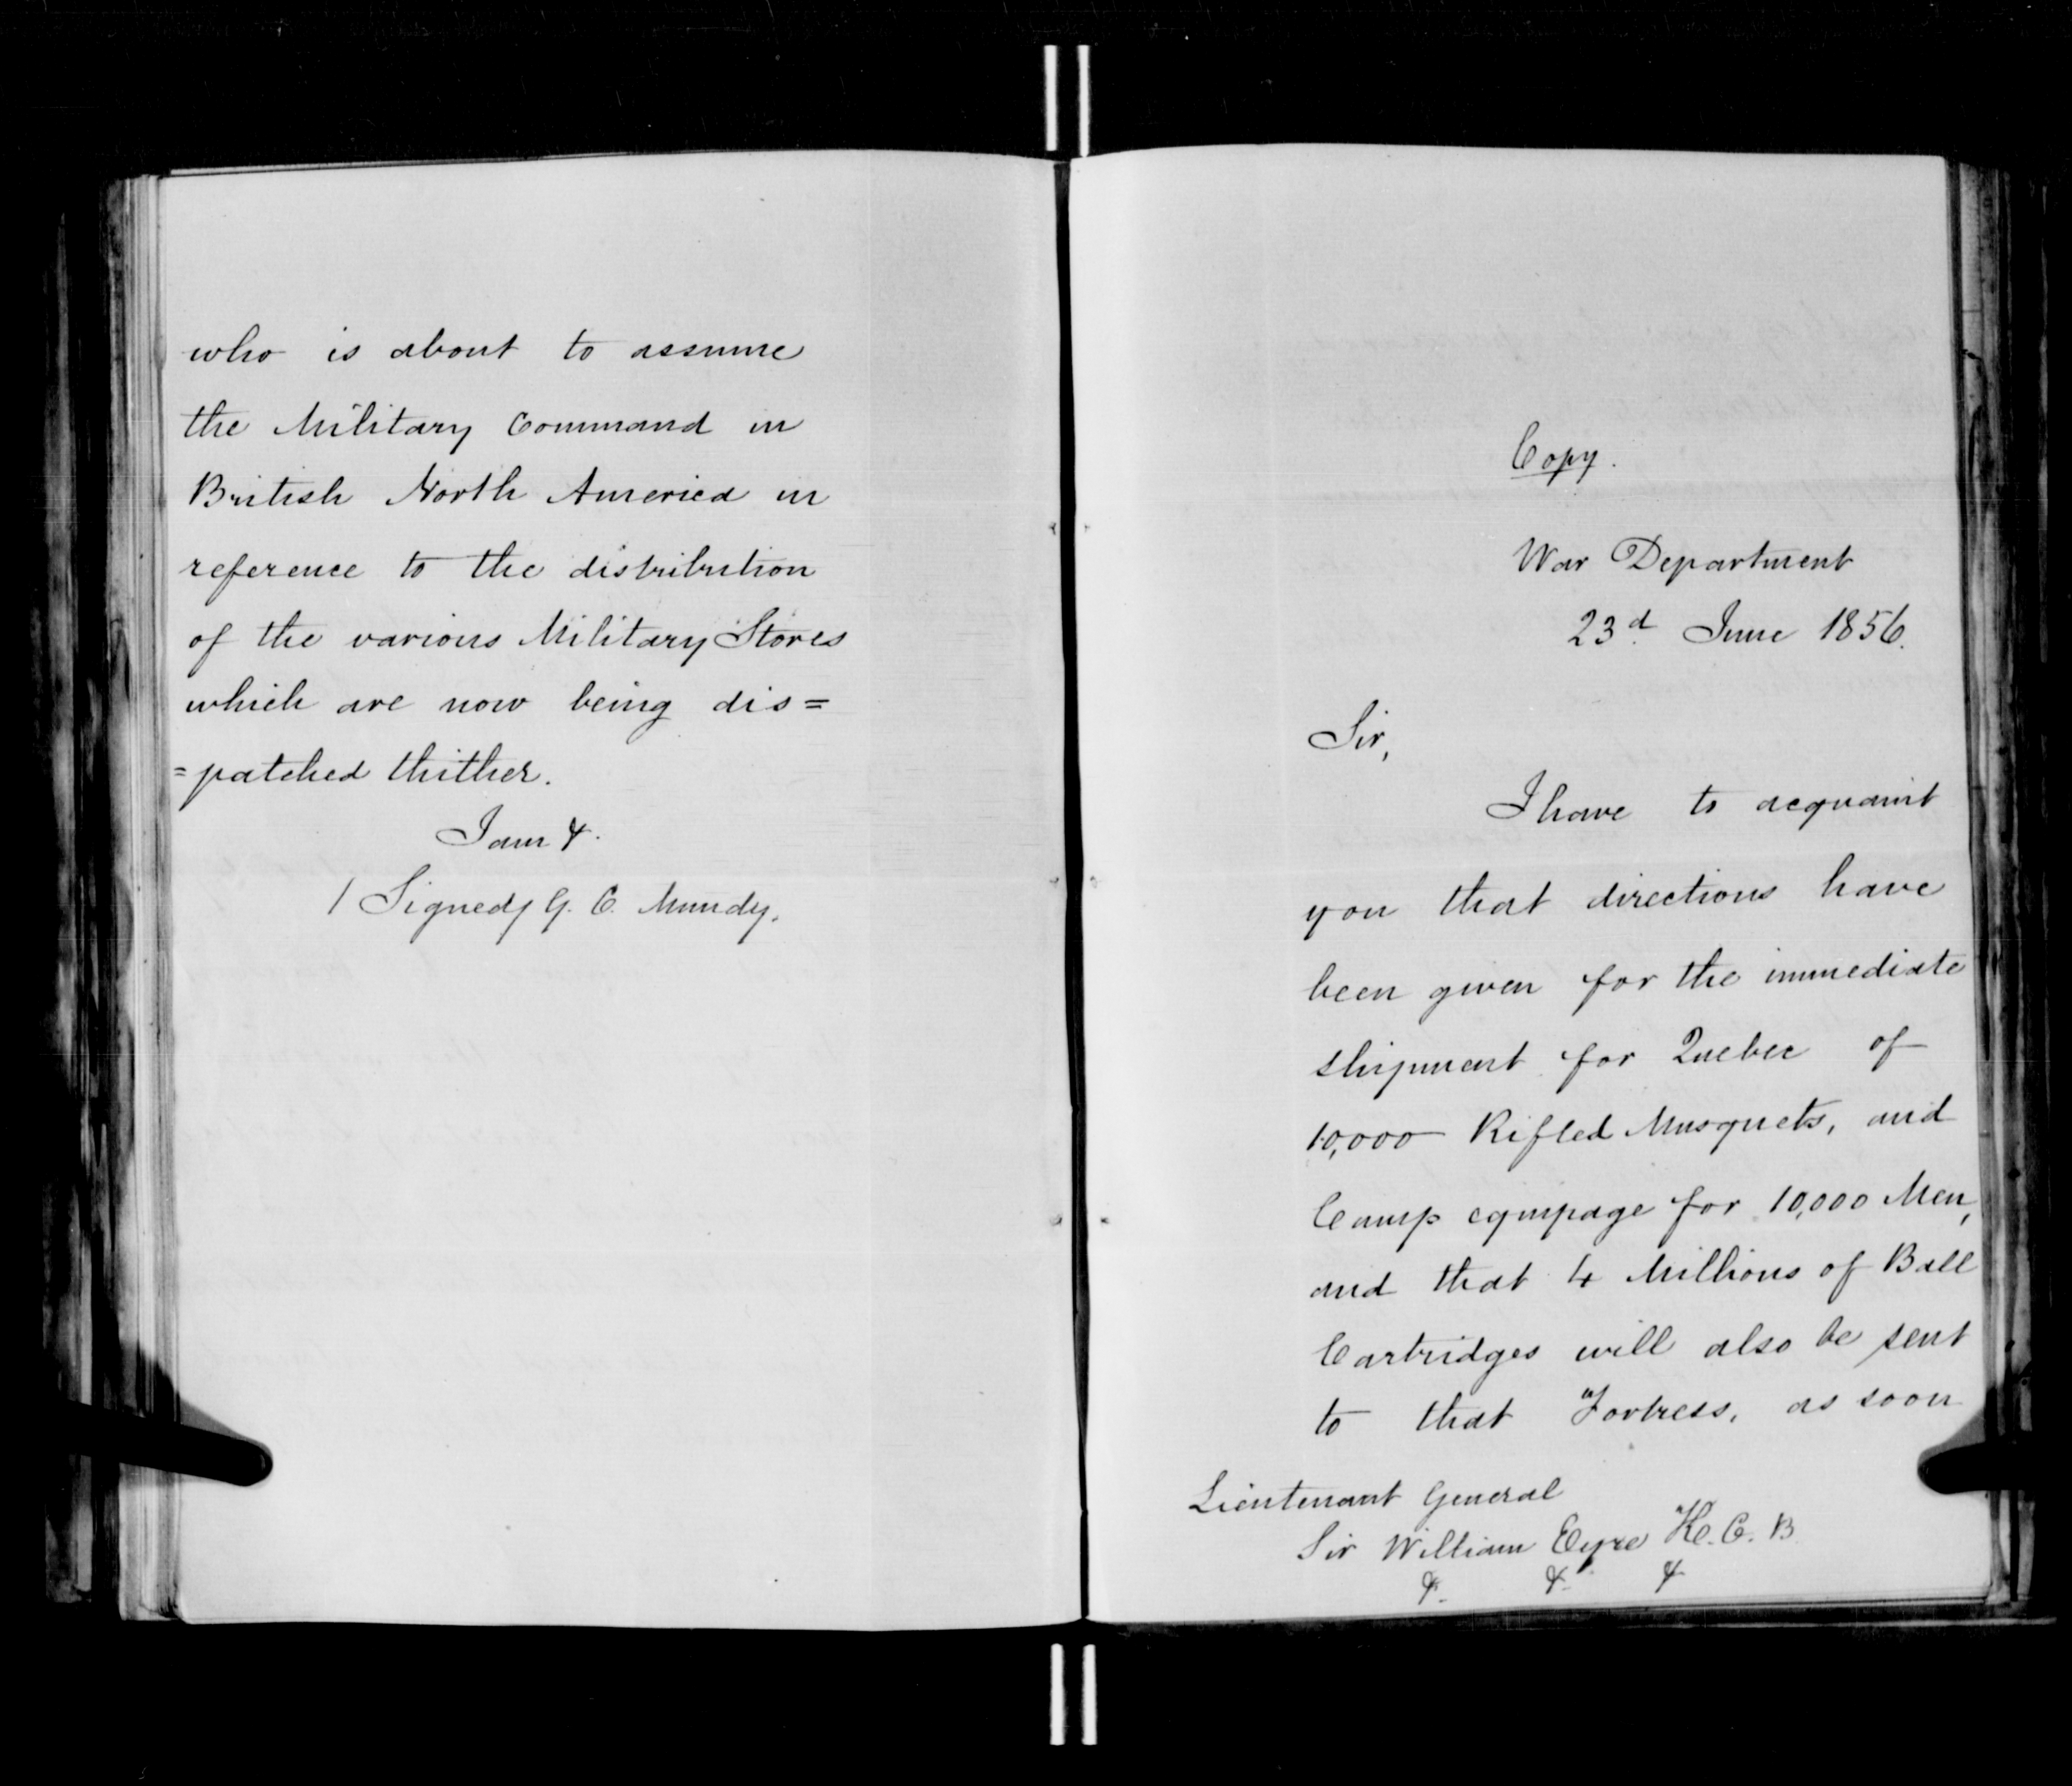 who is about to assume
the Military Command in
British North America in
reference to the distribution
of the various Military Stores
which are now being dis=
=patched thither.
I am &.
/Signed/ G. C. Mundy.
Copy.
War Department
23d. June 1856.
Sir,
I have to acquaint
you that directions have
been given for the immediate
shipment for Quebec of
10,000 Rifled Musquets, and
Camp equipage for 10,000 Men,
and that 4 Millions of Ball
Cartridges will also be sent
to that Fortress, as soon
Lieutenant General
Sir William Eyre K.C.B
&. &. &